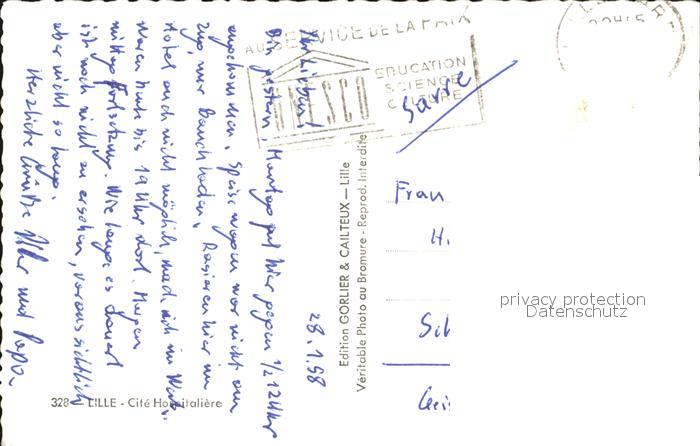 AU SERVICE DE LA PAIX
UNESCO
EDUCATION
SCIENCE
CULTURE
Sarre
28.1.58
Ihr Lieben!
Bin gestern, Montag gut hier gegen 1/2 12 Uhr
angekommen. Speisewagen war nicht am
Zug, nur Bauchladen. Rasieren hier im
Hotel auch nicht möglich, mach ich im
waren heute bis 19 Uhr dort. Morgen
mittag Fortsetzung. Wie lange es dauert
ist noch nicht zu ersehen, voraussichtlich
aber nicht so lange.
Herzliche Grüße Uhr und Papa.
Frau
H.
Edition GORLIER & CAILTEUX — Lille
Véritable Photo au Bromure - Reprod. Interdite
328 - LILLE - Cité Hospitalière
privacy protection
Datenschutz